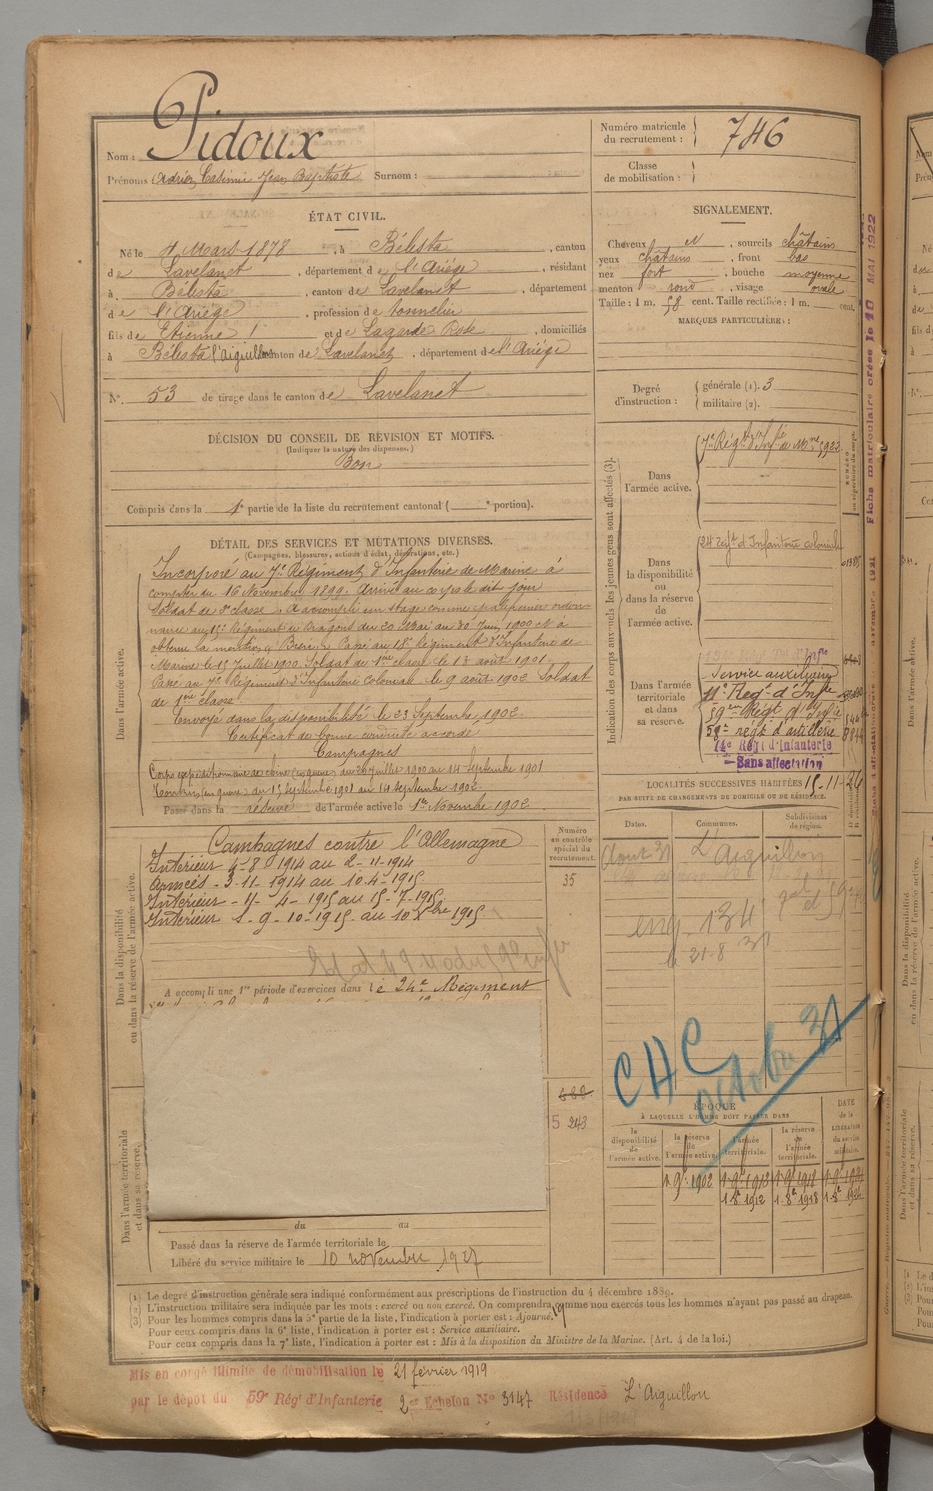 Nom : Pidoux
Prénoms : Adrien, Casimir Jean Baptiste Surnom :
Numéro matricule du recrutement : 746
Classe de mobilisation :
ÉTAT CIVIL.
Né le 4 Mars 1878, à Bélesta, canton
de Lavelanet, département de l'Ariège, résidant
à Bélesta, canton de Lavelanet, département
de l'Ariège, profession de tonnelier
fils de Etienne et de Lagarde Rose, domiciliés
à Bélesta l'Aiguillon canton de Lavelanet, département de l'Ariège
N° 53 de tirage dans le canton de Lavelanet
SIGNALEMENT.
Cheveux N, sourcils châtains
yeux châtains, front bas
nez fort, bouche moyenne
menton rond, visage ovale
Taille : 1 m. 58 cent. Taille rectifiée : 1 m. cent.
MARQUES PARTICULIÈRES :
Degré d'instruction : générale (1). 3
militaire (2).
DÉCISION DU CONSEIL DE RÉVISION ET MOTIFS.
(Indiquer la nature des dispenses.)
Bon
Compris dans la 1e partie de la liste du recrutement cantonal ( e portion).
DÉTAIL DES SERVICES ET MUTATIONS DIVERSES.
(Campagnes, blessures, actions d'éclat, décorations, etc.)
Dans l'armée active.
Incorporé au 7e Régiment d'Infanterie de Marine à
compter du 16 Novembre 1899. Arrivé au corps le dit jour
Soldat de 2e classe. A accompli un stage comme
au Régiment de Dragons du 20 Mai au 30 Juin 1900 et a
obtenu la mention Bien. Passé au 18e Régiment d'Infanterie de
Marine le 15 Juillet 1900. Soldat de 1ère classe le 13 août 1901.
Passé au 7e Régiment d'Infanterie Coloniale le 9 août 1902 Soldat
de 1ère classe
Envoyé dans la disponibilité le 23 Septembre 1902.
Certificat de bonne conduite accordé
Campagnes
Corps expéditionnaire de Chine (en guerre) du 20 Juillet 1900 au 14 Septembre 1901
Tonkin (en guerre) du 15 Septembre 1901 au 14 septembre 1902.
Passé dans la réserve de l'armée active le 1er Novembre 1902
Indication des corps auxquels les jeunes gens sont affectés (3).
Dans l'armée active.
7e Régt d'Infie de Mne 5922
Dans la disponibilité ou dans la réserve de l'armée active.
24 régt d'Infanterie coloniale
Dans l'armée territoriale et dans sa réserve.
Service auxiliaire
11e Régt d'Infie
59ème Régt d'Infie
58e régt d'artillerie
14e Régt d'Infanterie
Sans affectation
Fiche matriculaire créée le 10 MAI 1922
LOCALITÉS SUCCESSIVES HABITÉES 15-11-26
PAR SUITE DE CHANGEMENTS DE DOMICILE OU DE RÉSIDENCE.
Dates. Communes. Subdivisions de région.
Aout 31 L'Aiguillon
134
21-8-31
CHC
octobre 31
Dans la disponibilité ou dans la réserve de l'armée active.
Numéro au contrôle spécial du recrutement.
35
Campagnes contre l'Allemagne
Intérieur 4-8 1914 au 2-11-1914
Armées - 3-11-1914 au 10-4-1915
Intérieur - 11-4-1915 au 15-7-1915
Intérieur 9-10-1915 au 10 1915
A accompli une 1re période d'exercices dans le 24e Régiment
688
5 243
Dans l'armée territoriale et dans sa réserve.
du au
Passé dans la réserve de l'armée territoriale le
Libéré du service militaire le 10 novembre 1927
ÉPOQUE
À LAQUELLE L'HOMME DOIT PASSER DANS
la disponibilité de l'armée active. la réserve de l'armée active. l'armée territoriale. la réserve de l'armée territoriale. DATE de la LIBÉRATION du service militaire.
1 9e 1902
1. 8e 1912 1. 8e 1918
(1) Le degré d'instruction générale sera indiqué conformément aux prescriptions de l'instruction du 4 décembre 1889.
(2) L'instruction militaire sera indiquée par les mots : exercé ou non exercé. On comprendra comme non exercés tous les hommes n'ayant pas passé au drapeau.
(3) Pour les hommes compris dans la 5e partie de la liste, l'indication à porter est : Ajourné.
Pour ceux compris dans la 6e liste, l'indication à porter est : Service auxiliaire.
Pour ceux compris dans la 7e liste, l'indication à porter est : Mis à la disposition du Ministre de la Marine. (Art. 4 de la loi.)
Mis en congé illimité de démobilisation le 21 février 1919
par le dépôt du 59e Régt d'Infanterie 2e Echelon No 3147 Résidence L'Aiguillon